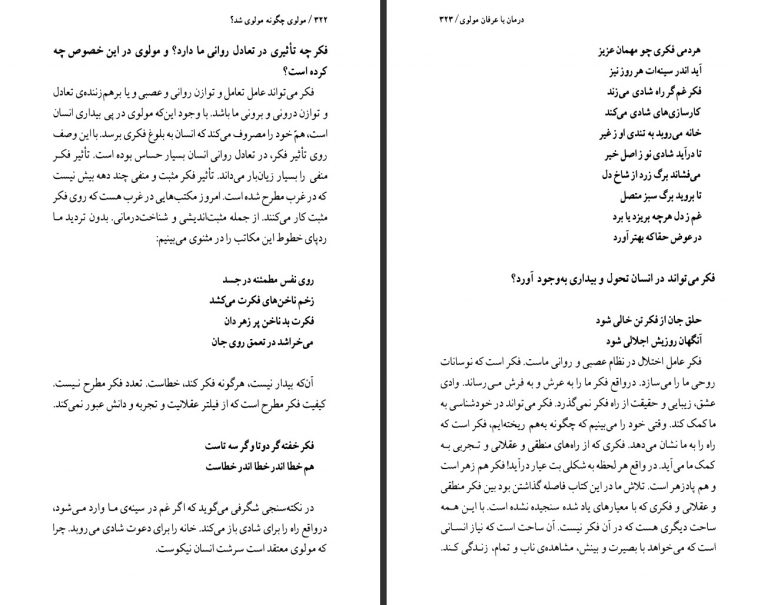 ۳۲۲ / مولوی چگونه مولوی شد؟
فکر چه تأثیری در تعادل روانی ما دارد؟ و مولوی در این خصوص چه
کرده است؟
فکر می‌تواند عامل تعامل و توازن روانی و عصبی و یا برهم‌زننده‌ی تعادل
و توازن درونی و برونی ما باشد. با وجود این‌که مولوی در پی بیداری انسان
است، همّ خود را مصروف می‌کند که انسان به بلوغ فکری برسد. با این وصف
روی تأثیر فکر، در تعادل روانی انسان بسیار حساس بوده است. تأثیر فکر
منفی را بسیار زیان‌بار می‌داند. تأثیر فکر مثبت و منفی چند دهه بیش نیست
که در غرب مطرح شده است. امروز مکتب‌هایی در غرب هست که روی فکر
مثبت کار می‌کنند. از جمله مثبت‌اندیشی و شناخت‌درمانی. بدون تردید ما
ردپای خطوط این مکاتب را در مثنوی می‌بینیم:
روی نفس مطمئنه در جسد
زخم ناخن‌های فکرت می‌کشد
فکرت بد ناخن پر زهر دان
می‌خراشد در تعمق روی جان
آن‌که بیدار نیست، هرگونه فکر کند، خطاست. تعدد فکر مطرح نیست.
کیفیت فکر مطرح است که از فیلتر عقلانیت و تجربه و دانش عبور نمی‌کند.
فکر خفته گر دوتا و گر سه تاست
هم خطا اندر خطا اندر خطاست
در نکته‌سنجی شگرفی می‌گوید که اگر غم در سینه‌ی ما وارد می‌شود،
درواقع راه را برای شادی باز می‌کند. خانه را برای دعوت شادی می‌روبد. چرا
که مولوی معتقد است سرشت انسان نیکوست.
درمان با عرفان مولوی / ۳۲۳
هردمی فکری چو مهمان عزیز
آید اندر سینه‌ات هر روز نیز
فکر غم گر راه شادی می‌زند
کارسازی‌های شادی می‌کند
خانه می‌روبد به تندی او ز غیر
تا درآید شادی نو ز اصل خیر
می‌فشاند برگ زرد از شاخ دل
تا بروید برگ سبز متصل
غم ز دل هرچه بریزد یا برد
درعوض حقا که بهتر آورد
فکر می‌تواند در انسان تحول و بیداری به‌وجود آورد؟
حلق جان از فکر تن خالی شود
آنگهان روزیش اجلالی شود
فکر عامل اختلال در نظام عصبی و روانی ماست. فکر است که نوسانات
روحی ما را می‌سازد. درواقع فکر ما را به عرش و به فرش می‌رساند. وادی
عشق، زیبایی و حقیقت از راه فکر نمی‌گذرد. فکر می‌تواند در خودشناسی به
ما کمک کند. وقتی خود را می‌بینیم که چگونه به‌هم ریخته‌ایم، فکر است که
راه را به ما نشان می‌دهد. فکری که از راه‌های منطقی و عقلانی و تجربی به
کمک ما می‌آید. در واقع هر لحظه به شکلی بت عیار درآید! فکر هم زهر است
و هم پادزهر است. تلاش ما در این کتاب فاصله گذاشتن بود بین فکر منطقی
و عقلانی و فکری که با معیارهای یاد شده سنجیده نشده است. با این همه
ساحت دیگری هست که در آن فکر نیست. آن ساحت است که نیاز انسانی
است که می‌خواهد با بصیرت و بینش، مشاهده‌ی ناب و تمام، زندگی کند.